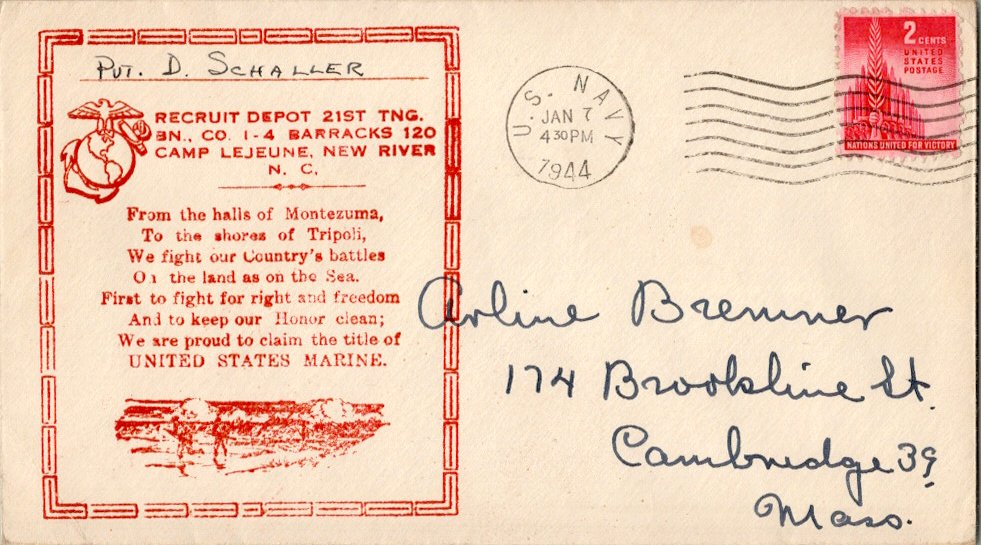 Pvt. D. Schaller
RECRUIT DEPOT 21ST TNG.
BN., CO. I-4 BARRACKS 120
CAMP LEJEUNE, NEW RIVER
N. C.
From the halls of Montezuma,
To the shores of Tripoli,
We fight our Country's battles
On the land as on the Sea.
First to fight for right and freedom
And to keep our Honor clean;
We are proud to claim the title of
UNITED STATES MARINE.
U. S. NAVY
JAN 7
4 30 PM
1944
2 CENTS
UNITED
STATES
POSTAGE
NATIONS UNITED FOR VICTORY
Arline Bremner
174 Brookline St.
Cambridge 39
Mass.